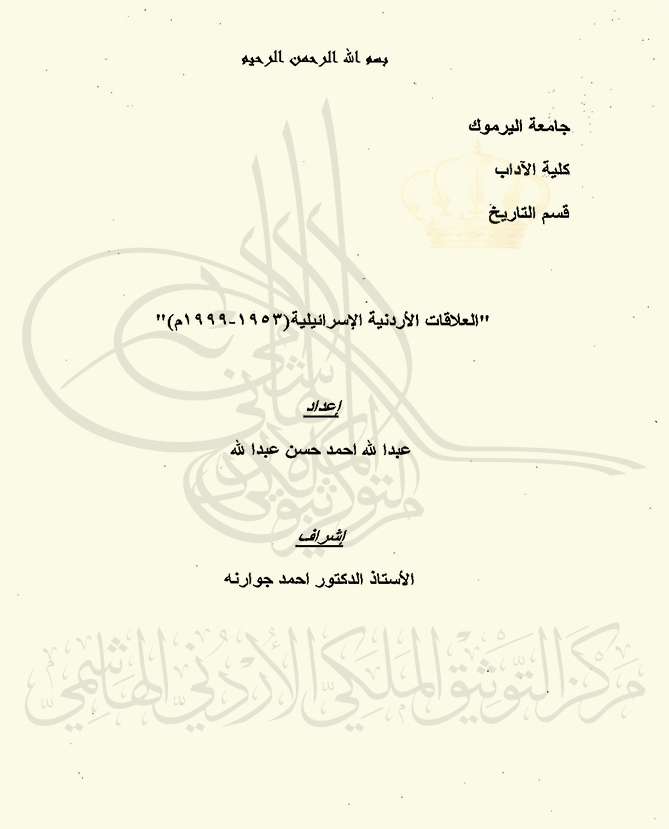 بسم الله الرحمن الرحيم
جامعة اليرموك
كلية الآداب
قسم التاريخ
"العلاقات الأردنية الإسرائيلية(١٩٥٣-١٩٩٩م)"
إعداد
عبدا لله احمد حسن عبدا لله
إشراف
الأستاذ الدكتور احمد جوارنه
مركز التوثيق الملكي الأردني الهاشمي
مَركَز التَّوثيق المَلَكيّ الأُردُنيّ الهَاشِميّ